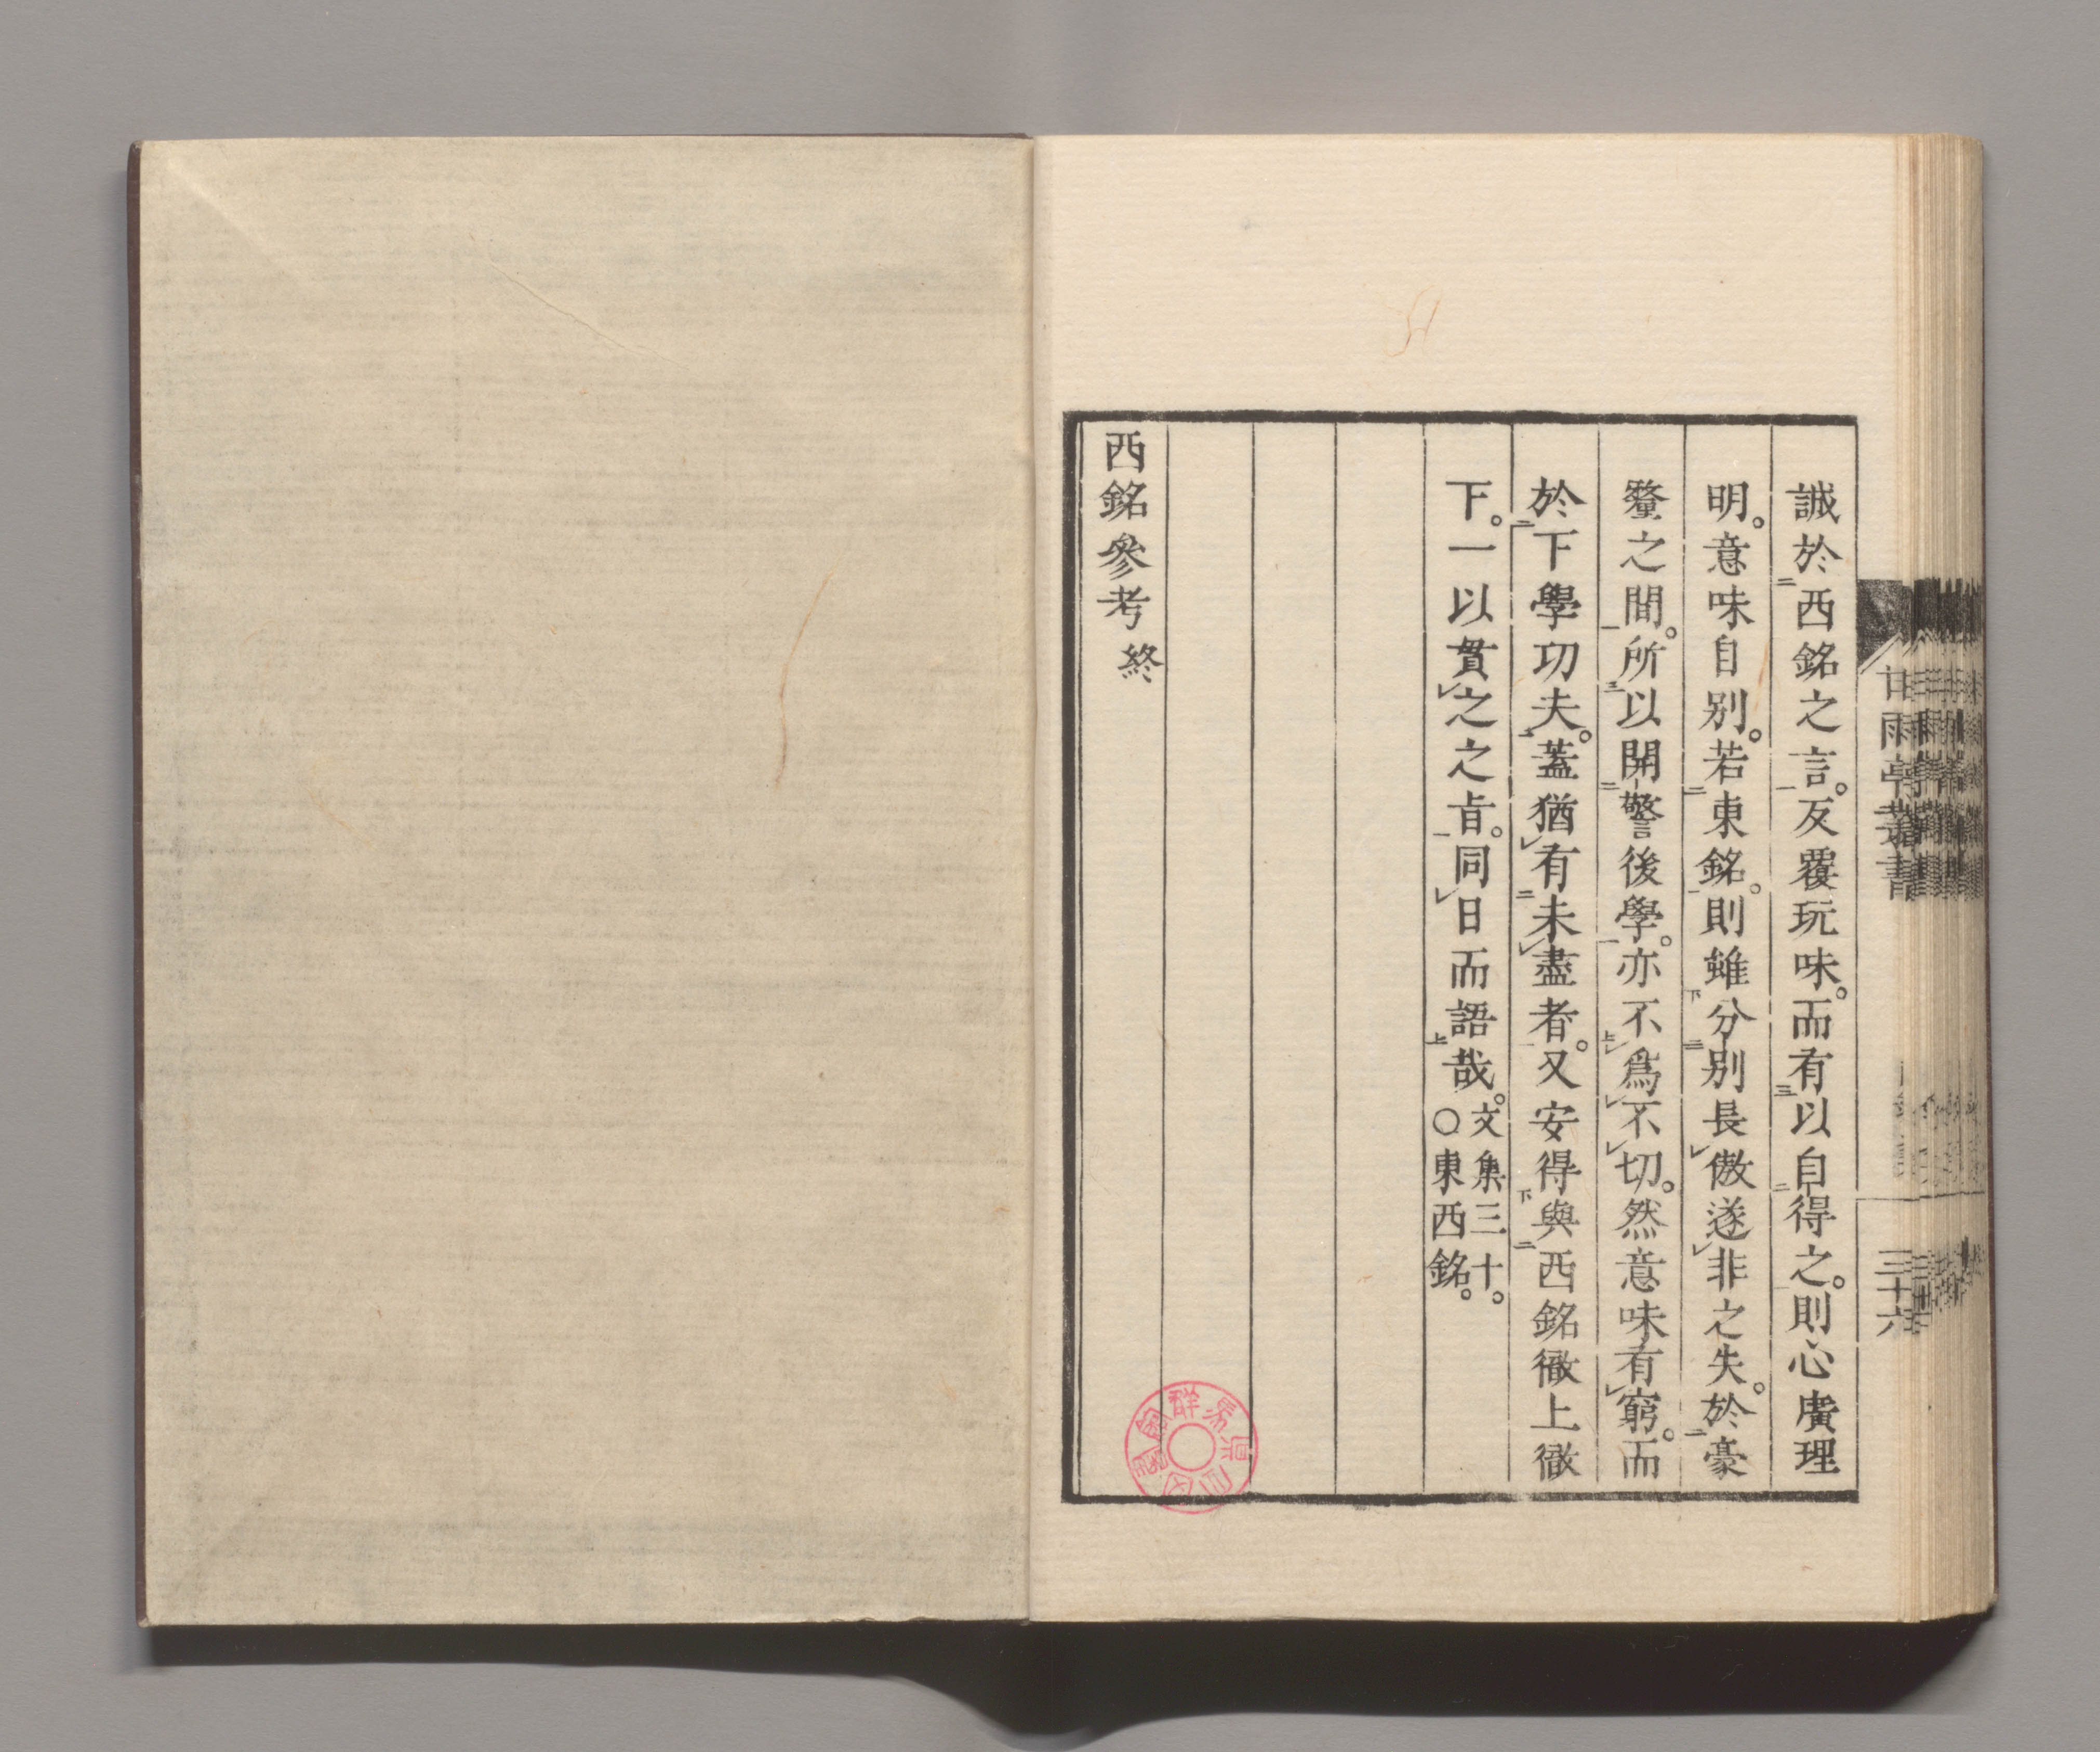 誠於西銘之言。反覆玩味。而有以自得之。則心廣理
明。意味自別。若東銘。則雖分別長傲遂非之失。於豪
釐之間。所以開警後學。亦不爲不切。然意味有窮。而
於下學功夫。蓋猶有未盡者。又安得與西銘徹上徹
下。一以貫之之旨。同日而語哉。文集三十。
○東西銘。
西銘參考終
甘雨亭叢書
三十六